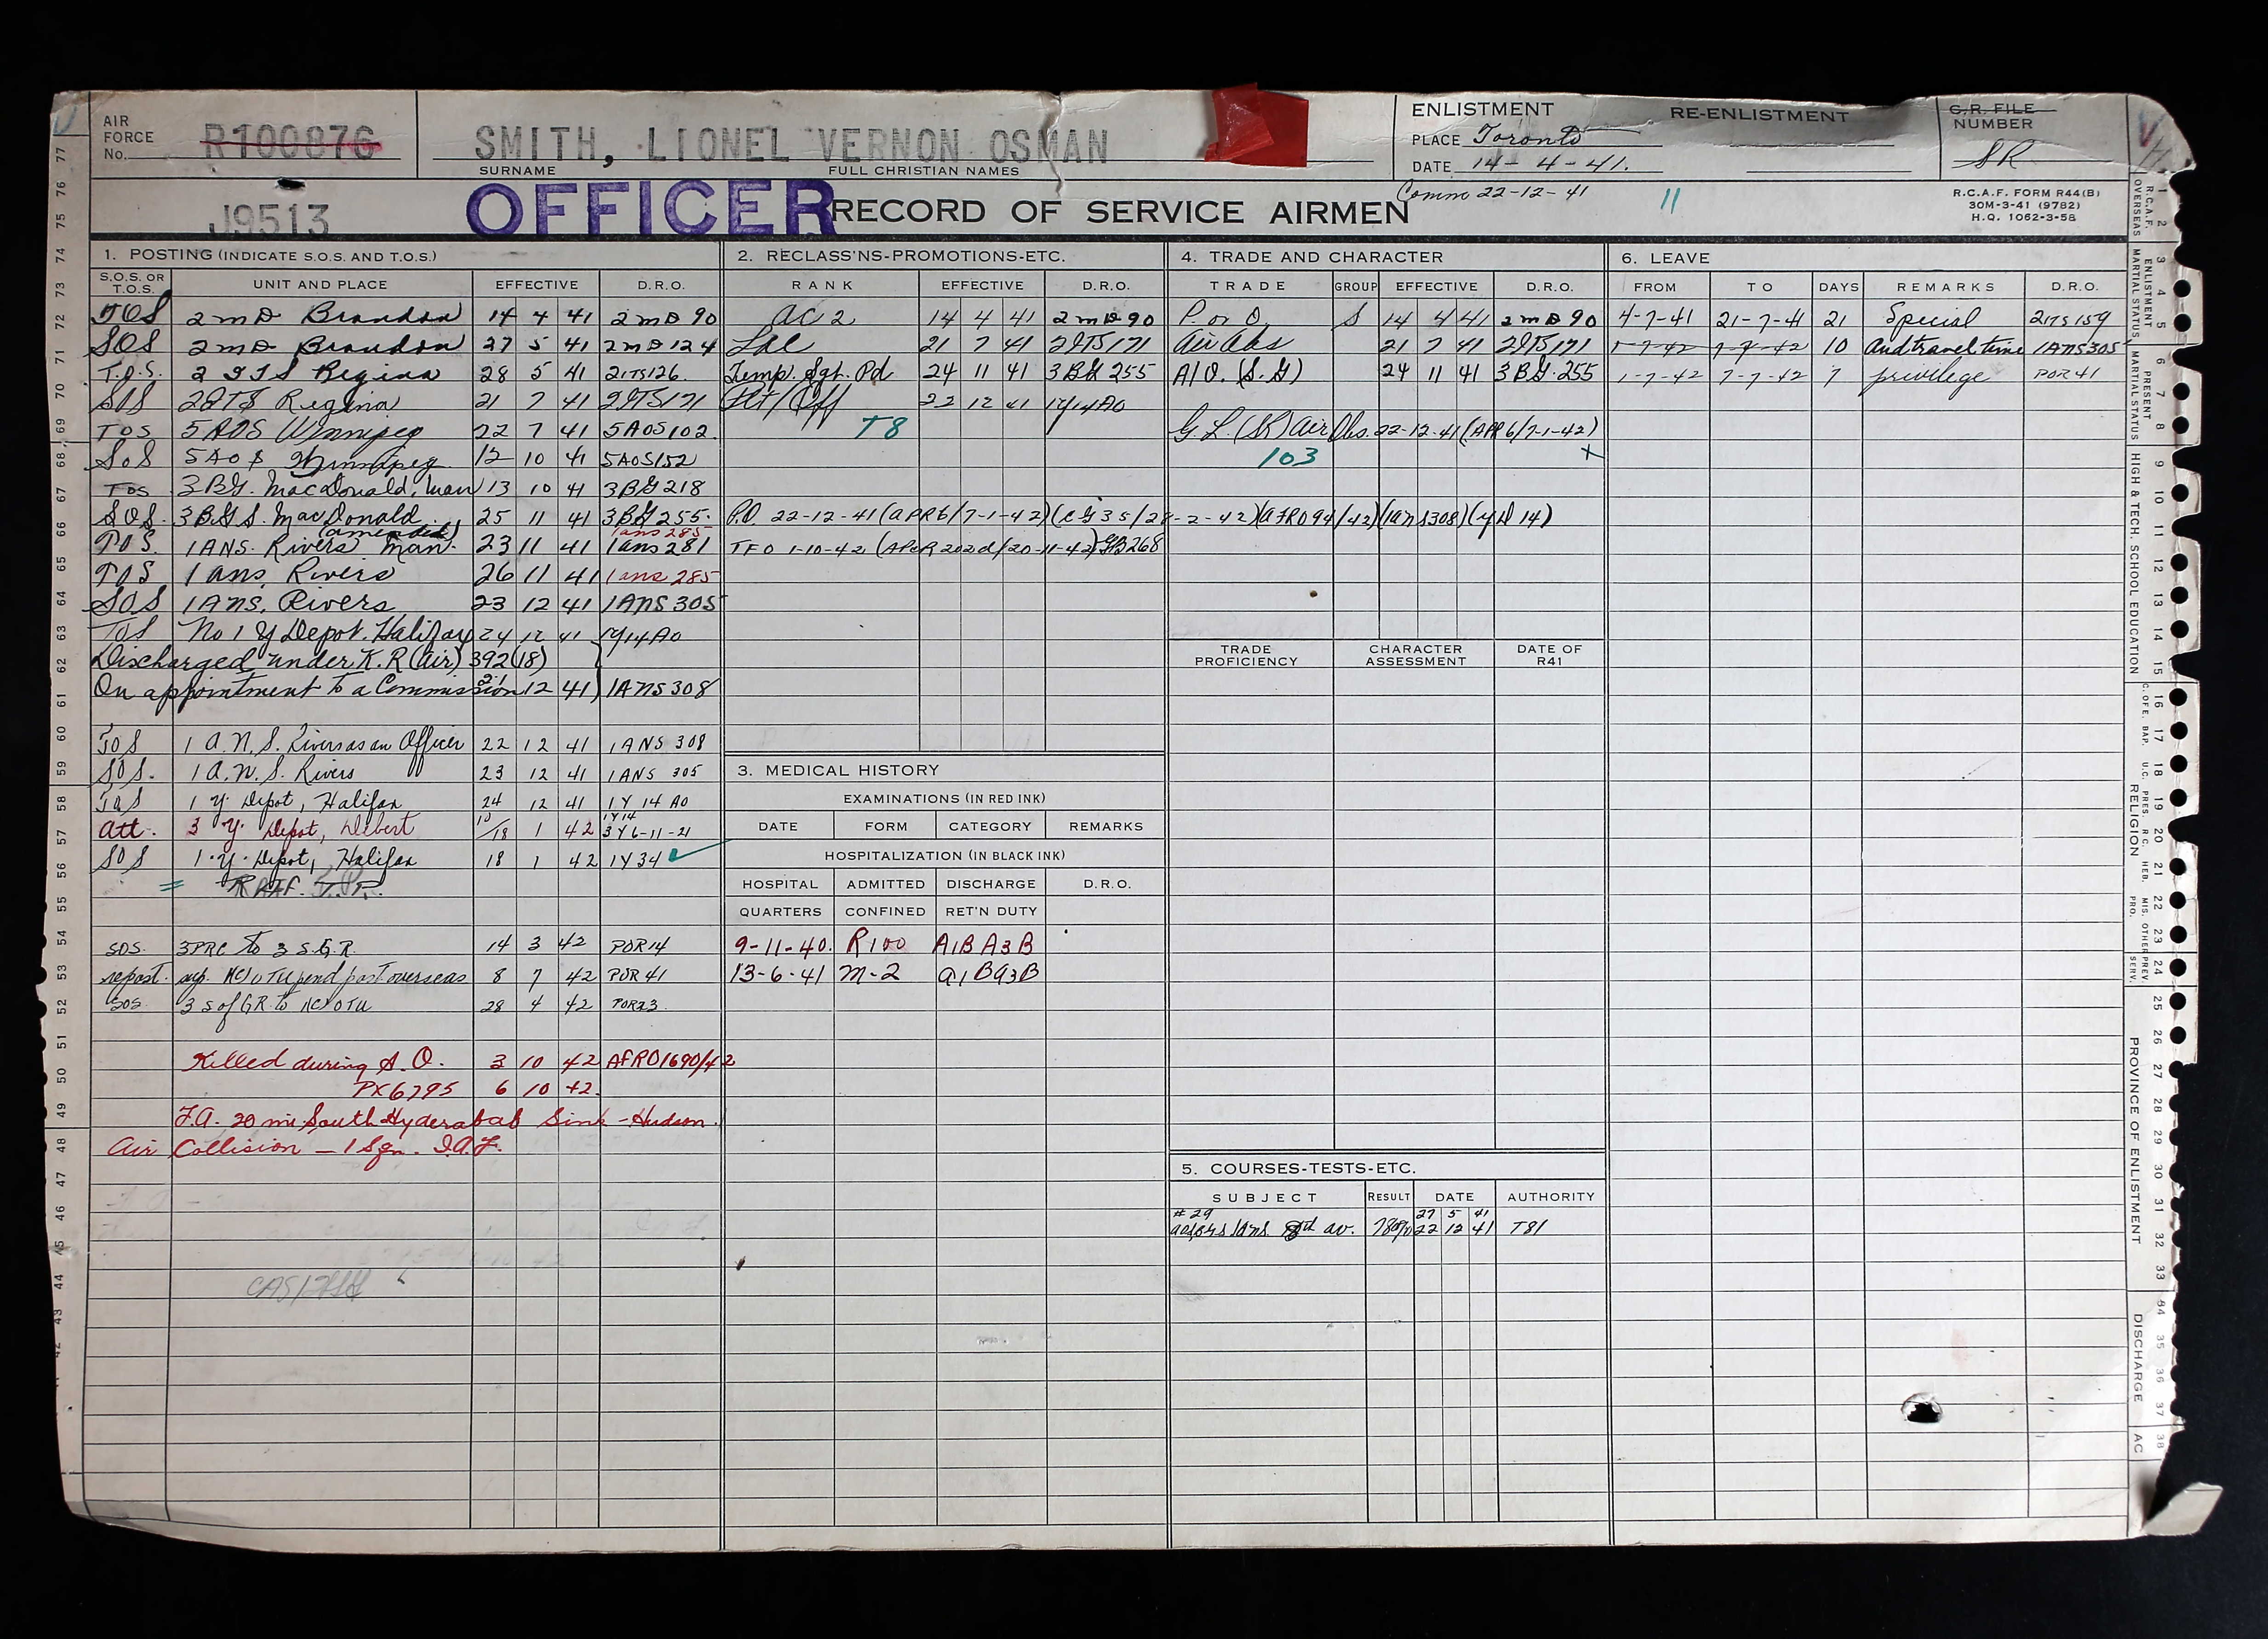 AIR FORCE No. R100876
SMITH, LIONEL VERNON OSMAN
SURNAME FULL CHRISTIAN NAMES
ENLISTMENT
PLACE Toronto
DATE 14-4-41.
RE-ENLISTMENT
G.R. FILE NUMBER
SR
J9513
OFFICER
RECORD OF SERVICE AIRMEN
Comm 22-12-41
11
R.C.A.F. FORM R44(B)
30M-3-41 (9782)
H.Q. 1062-3-58
1. POSTING (INDICATE S.O.S. AND T.O.S.)
S.O.S. OR T.O.S. UNIT AND PLACE EFFECTIVE D.R.O.
TOS 2 M D Brandon 14 4 41 2 M D 90
SOS 2 M D Brandon 27 5 41 2 M D 124
T.O.S. 2 ITS Regina 28 5 41 2ITS126
SOS 2ITS Regina 21 7 41 2ITS171
TOS 5 AOS Winnipeg 22 7 41 5AOS102
SOS 5AOS Winnipeg 12 10 41 5AOS152
TOS 3BG. MacDonald, Man 13 10 41 3BG 218
SOS. 3BGS. MacDonald 25 11 41 3BG 255
(amended) 1ans 285
TOS. 1ANS. Rivers Man. 23 11 41 1ans 281
TOS 1 ans, Rivers 26 11 41 1ans 285
SOS 1ANS, Rivers 23 12 41 1ANS 305
TOS No 1 Y Depot. Halifax 24 12 41 1Y14AO
Discharged under K.R (Air) 392 (18)
On appointment to a Commission 21 12 41 1ANS 308
TOS 1 A.N.S. Rivers as an Officer 22 12 41 1ANS 308
SOS. 1 A.N.S. Rivers 23 12 41 1ANS 305
TOS 1 Y Depot, Halifax 24 12 41 1Y 14 AO
1Y14
Att. 3 Y. Depot, Debert /18 1 42 3Y6-11-21
SOS 1.Y. Depot, Halifax 18 1 42 1Y34
SOS. 3PRC to 3 S.G.R. 14 3 42 POR14
repost. overseas 8 7 42 POR 41
SOS 3 S of GR. to OTU 28 4 42 POR23
Killed during A.O. 3 10 42 AFRO1690/42
PX6795 6 10 42.
F.A. 20 mi South Hyderabab Sink - Hudson.
Air Collision - 1 Sqn. I.A.F.
2. RECLASS'NS-PROMOTIONS-ETC.
RANK EFFECTIVE D.R.O.
AC 2 14 4 41 2 M D 90
Lac 21 7 41 2ITS171
Temp. Sgt. Pd 24 11 41 3BG 255
Plt/Off 22 12 41 1Y14AO
T8
P.O. 22-12-41 (APR6/7-1-42) (CG35/28-2-42) (AFRO94/42) (1ans308) (YD 14)
TFO 1-10-42 (APCR 202d/20-11-42) 268
3. MEDICAL HISTORY
EXAMINATIONS (IN RED INK)
DATE FORM CATEGORY REMARKS
HOSPITALIZATION (IN BLACK INK)
HOSPITAL ADMITTED DISCHARGE D.R.O.
QUARTERS CONFINED RET'N DUTY
9-11-40. R100 A1B A3B
13-6-41 M-2 A1BA3B
4. TRADE AND CHARACTER
TRADE GROUP EFFECTIVE D.R.O.
P or O S 14 4 41 2 M D 90
Air Obs 21 7 41 2ITS171
A/O. (S.G) 24 11 41 3BG.255
G.L. (SR) Air Obs. 22-12-41 (APR 6/7-1-42)
103 X
TRADE PROFICIENCY CHARACTER ASSESSMENT DATE OF R41
5. COURSES-TESTS-ETC.
SUBJECT RESULT DATE AUTHORITY
#29 27 5 41
av. 22 12 41 T81
6. LEAVE
FROM TO DAYS REMARKS D.R.O.
4-7-41 21-7-41 21 Special 2ITS 159
10 and travel time 1ANS305
1-7-42 7-7-42 7 privilege POR 41
R.C.A.F. OVERSEAS
ENLISTMENT MARTIAL STATUS
PRESENT MARTIAL STATUS
HIGH & TECH. SCHOOL EDUCATION
C. OF E. BAP. U.C. PRES. R.C. HEB. MIS. OTHER PRO.
RELIGION
PREV. SERV.
PROVINCE OF ENLISTMENT
DISCHARGE
AC
1 2 3 4 5 6 7 8 9 10 11 12 13 14 15 16 17 18 19 20 21 22 23 24 25 26 27 28 29 30 31 32 33 34 35 36 37 38
77 76 75 74 73 72 71 70 69 68 67 66 65 64 63 62 61 60 59 58 57 56 55 54 53 52 51 50 49 48 47 46 45 44 43 42